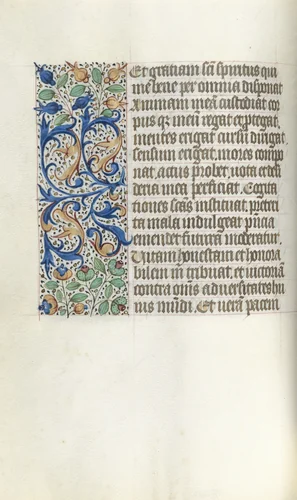 Et gratiam sci spiritus qui
me bene per omnia disponat
Animam meā custodiat cor
pus qz meū regat et protegat
mentes erigat cursū dirigat
sensum erigat, mores compo
nat, actus probet, vota et desi
deria mea perficiat. Cogita
tiones scās instituat, preteri
ta mala indulgeat, pn̄cia
emendet futura moderatur.
Vitam honestam et honora
bilem m̄ tribuat, et victoriā
contra om̄s adversitates hu
ius mūdi. Et veram pacem